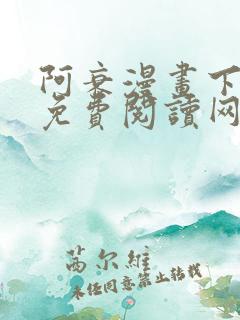 阿衰漫畫下
免費閱讀网
芮尔維
未任同意禁止转载